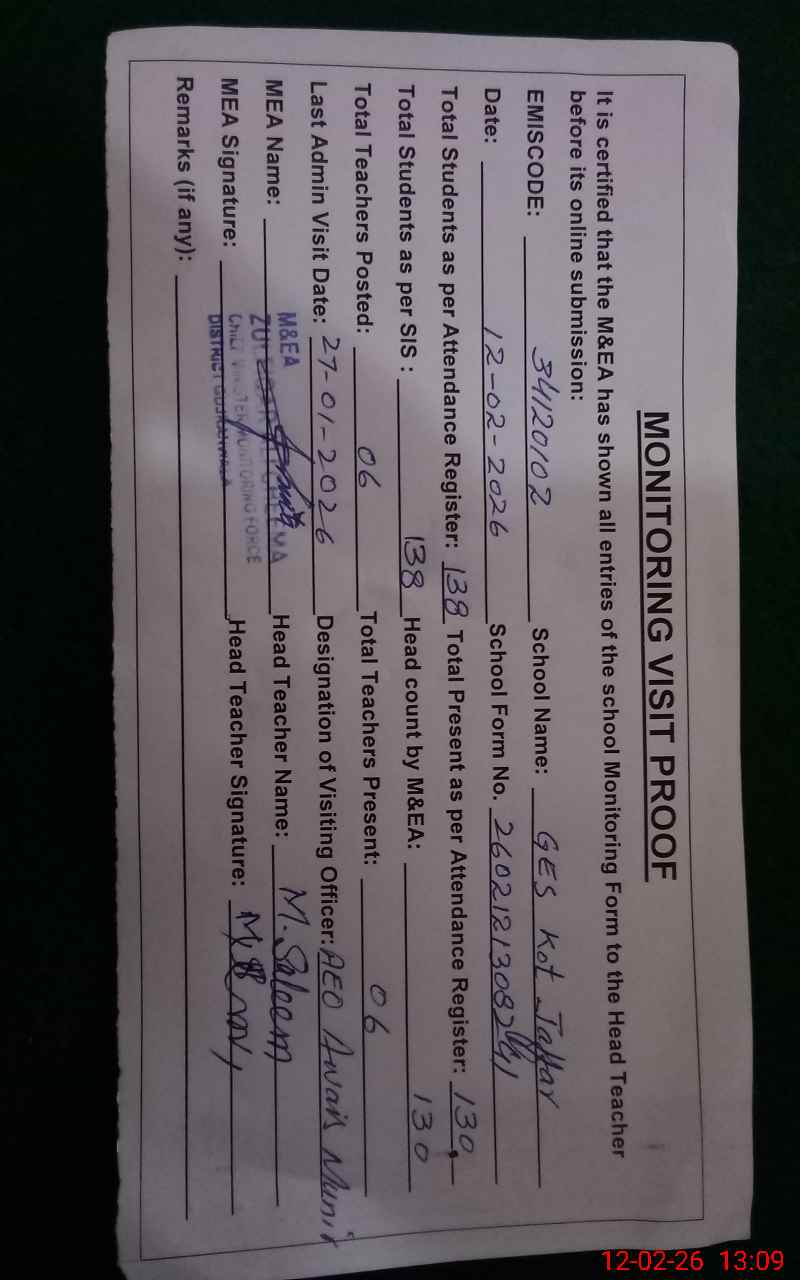 MONITORING VISIT PROOF
It is certified that the M&EA has shown all entries of the school Monitoring Form to the Head Teacher
before its online submission:
EMISCODE: 34120102 School Name: GES Kot Jaffar
Date: 12-02-2026 School Form No.
Total Students as per Attendance Register: 138 Total Present as per Attendance Register: 130
Total Students as per SIS : 138 Head count by M&EA: 130
Total Teachers Posted: 06 Total Teachers Present: 06
Last Admin Visit Date: 27-01-2026 Designation of Visiting Officer: AEO Awais Munir
MEA Name: Head Teacher Name: M. Saleem
MEA Signature: Head Teacher Signature:
Remarks (if any):
M&EA
MONITORING FORCE
DISTRICT GUJRANWALA
12-02-26 13:09